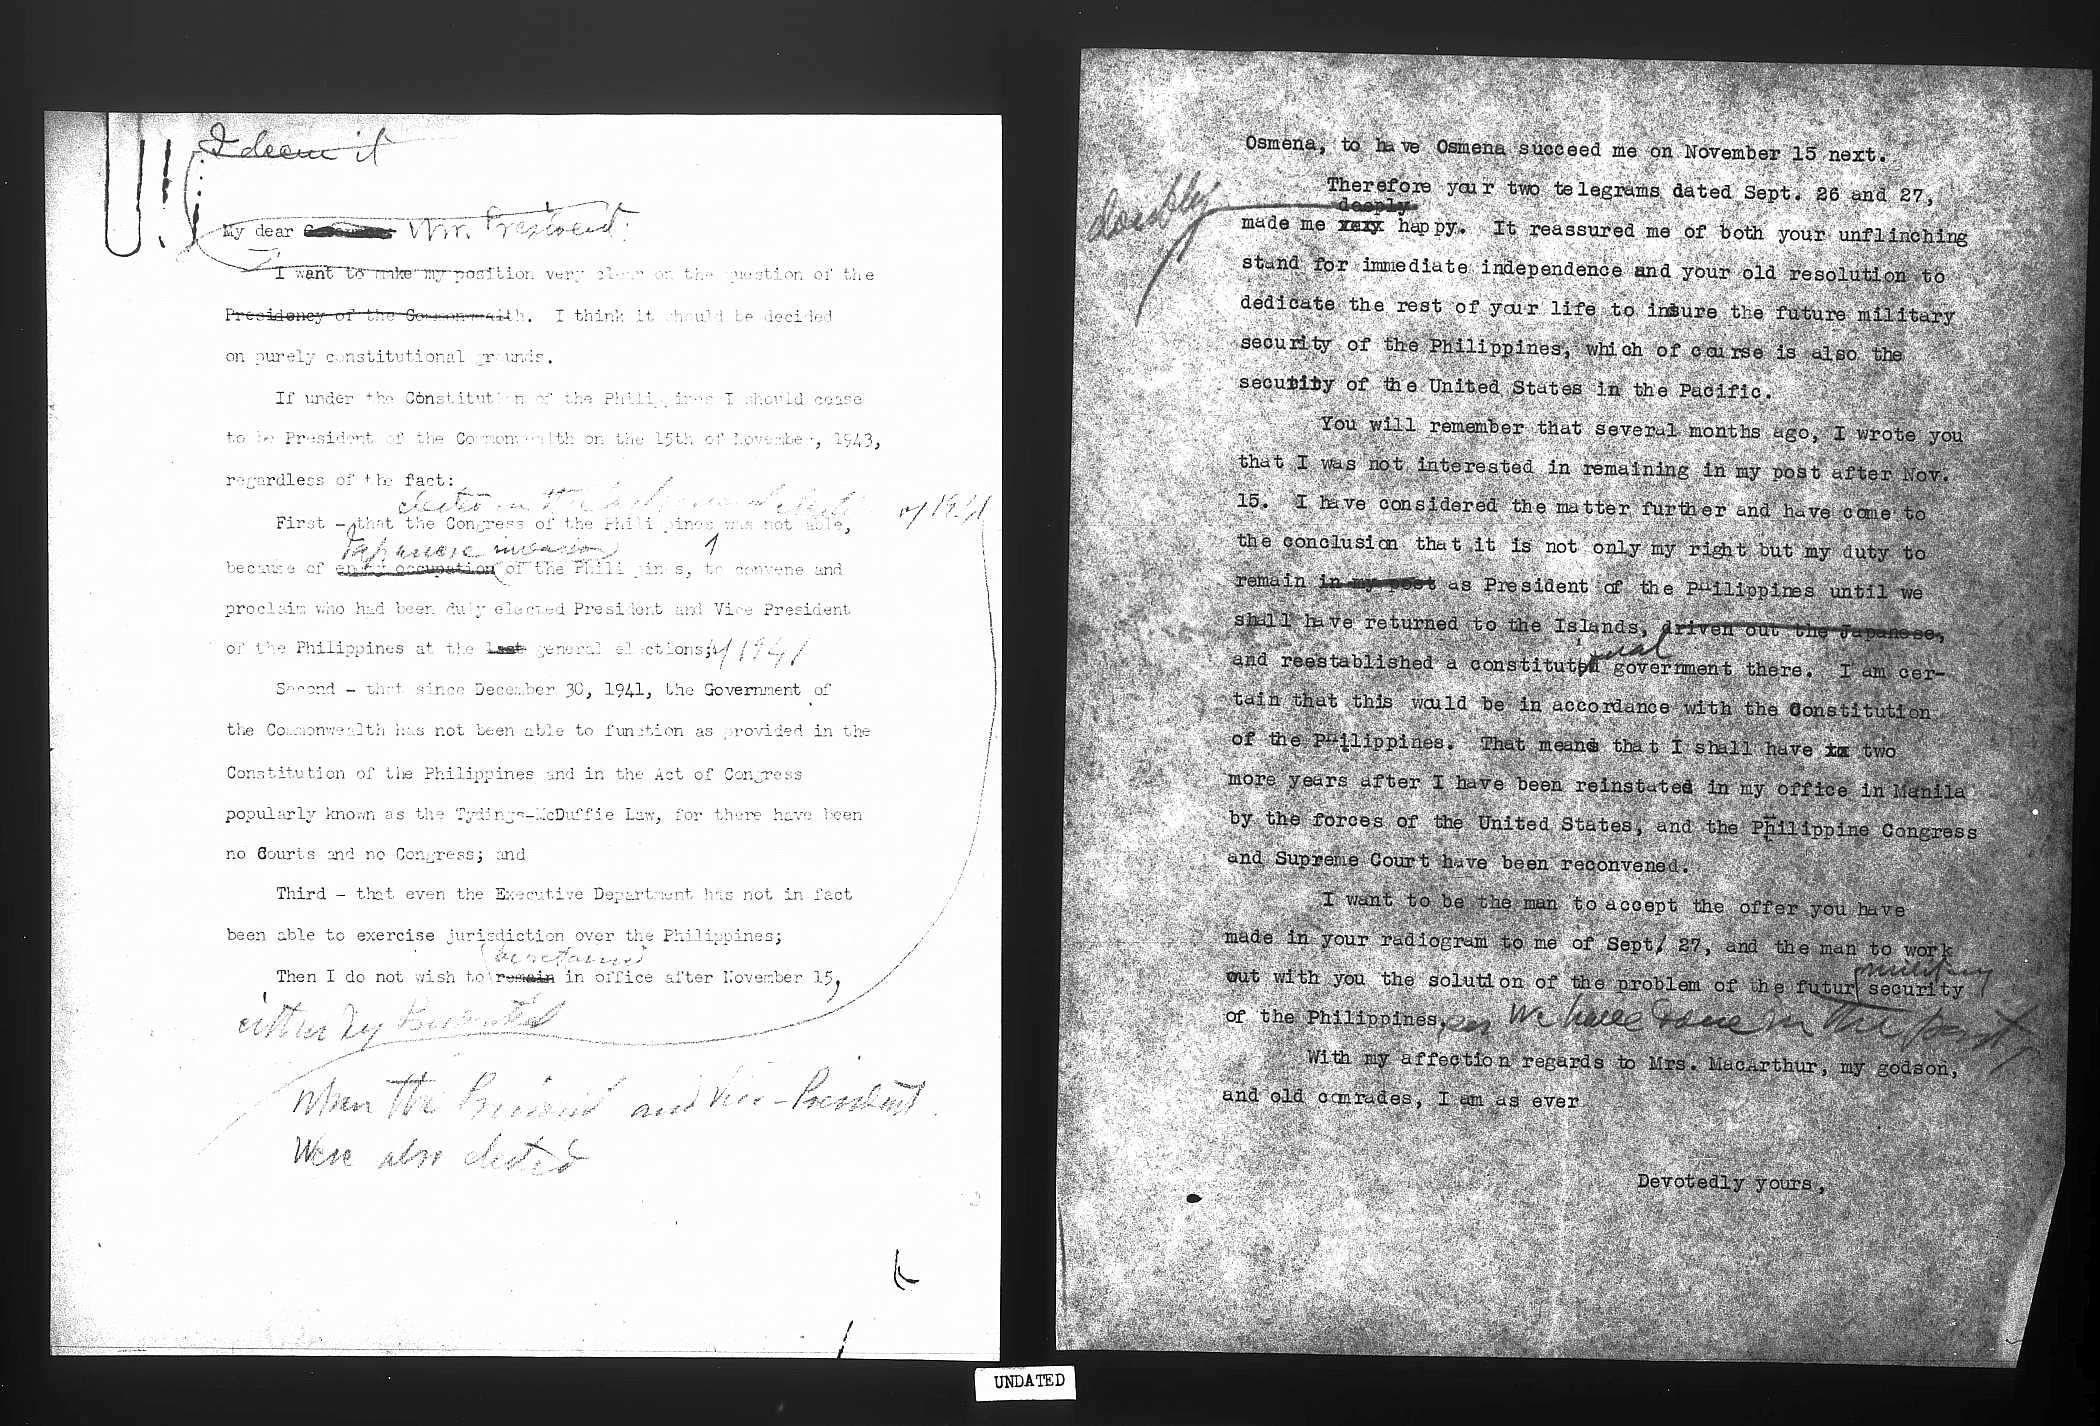 I deem it
My dear Mr. President:
I want to make my position very clear on the question of the
Presidency of the Commonwealth. I think it should be decided
on purely constitutional grounds.
If under the Constitution of the Philippines I should cease
to be President of the Commonwealth on the 15th of November, 1943,
regardless of the fact:
elected in the of 1941
First - that the Congress of the Philippines was not able,
Japanese invasion
because of enemy occupation of the Philippines, to convene and
proclaim who had been duly elected President and Vice President
of the Philippines at the last general elections; of 1941
Second - that since December 30, 1941, the Government of
the Commonwealth has not been able to function as provided in the
Constitution of the Philippines and in the Act of Congress
popularly known as the Tydings-McDuffie Law, for there have been
no Courts and no Congress; and
Third - that even the Executive Department has not in fact
been able to exercise jurisdiction over the Philippines;
Then I do not wish to remain in office after November 15,
either by
when the President and Vice-President
were also elected
Osmena, to have Osmena succeed me on November 15 next.
Therefore your two telegrams dated Sept. 26 and 27,
doubly deeply
made me very happy. It reassured me of both your unflinching
stand for immediate independence and your old resolution to
dedicate the rest of your life to insure the future military
security of the Philippines, which of course is also the
security of the United States in the Pacific.
You will remember that several months ago, I wrote you
that I was not interested in remaining in my post after Nov.
15. I have considered the matter further and have come to
the conclusion that it is not only my right but my duty to
remain in my post as President of the Philippines until we
shall have returned to the Islands, driven out the Japanese,
and reestablished a constitutional government there. I am cer-
tain that this would be in accordance with the Constitution
of the Philippines. That means that I shall have two
more years after I have been reinstated in my office in Manila
by the forces of the United States, and the Philippine Congress
and Supreme Court have been reconvened.
I want to be the man to accept the offer you have
made in your radiogram to me of Sept. 27, and the man to work
military
out with you the solution of the problem of the futur security
of the Philippines, as we have done in the past
With my affection regards to Mrs. MacArthur, my godson,
and old comrades, I am as ever
Devotedly yours,
UNDATED